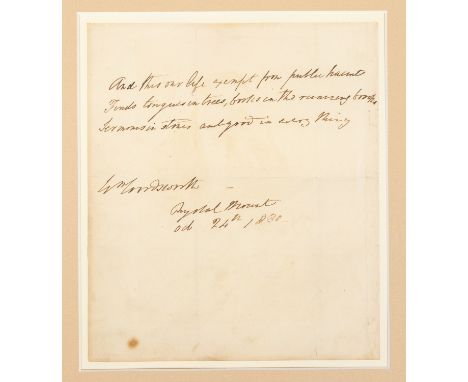 And this our life exempt from public haunt
Finds tongues in trees, books in the running brooks
Sermons in stones and good in every thing
Wm Wordsworth
Rydal Mount
Oct 24th 1830